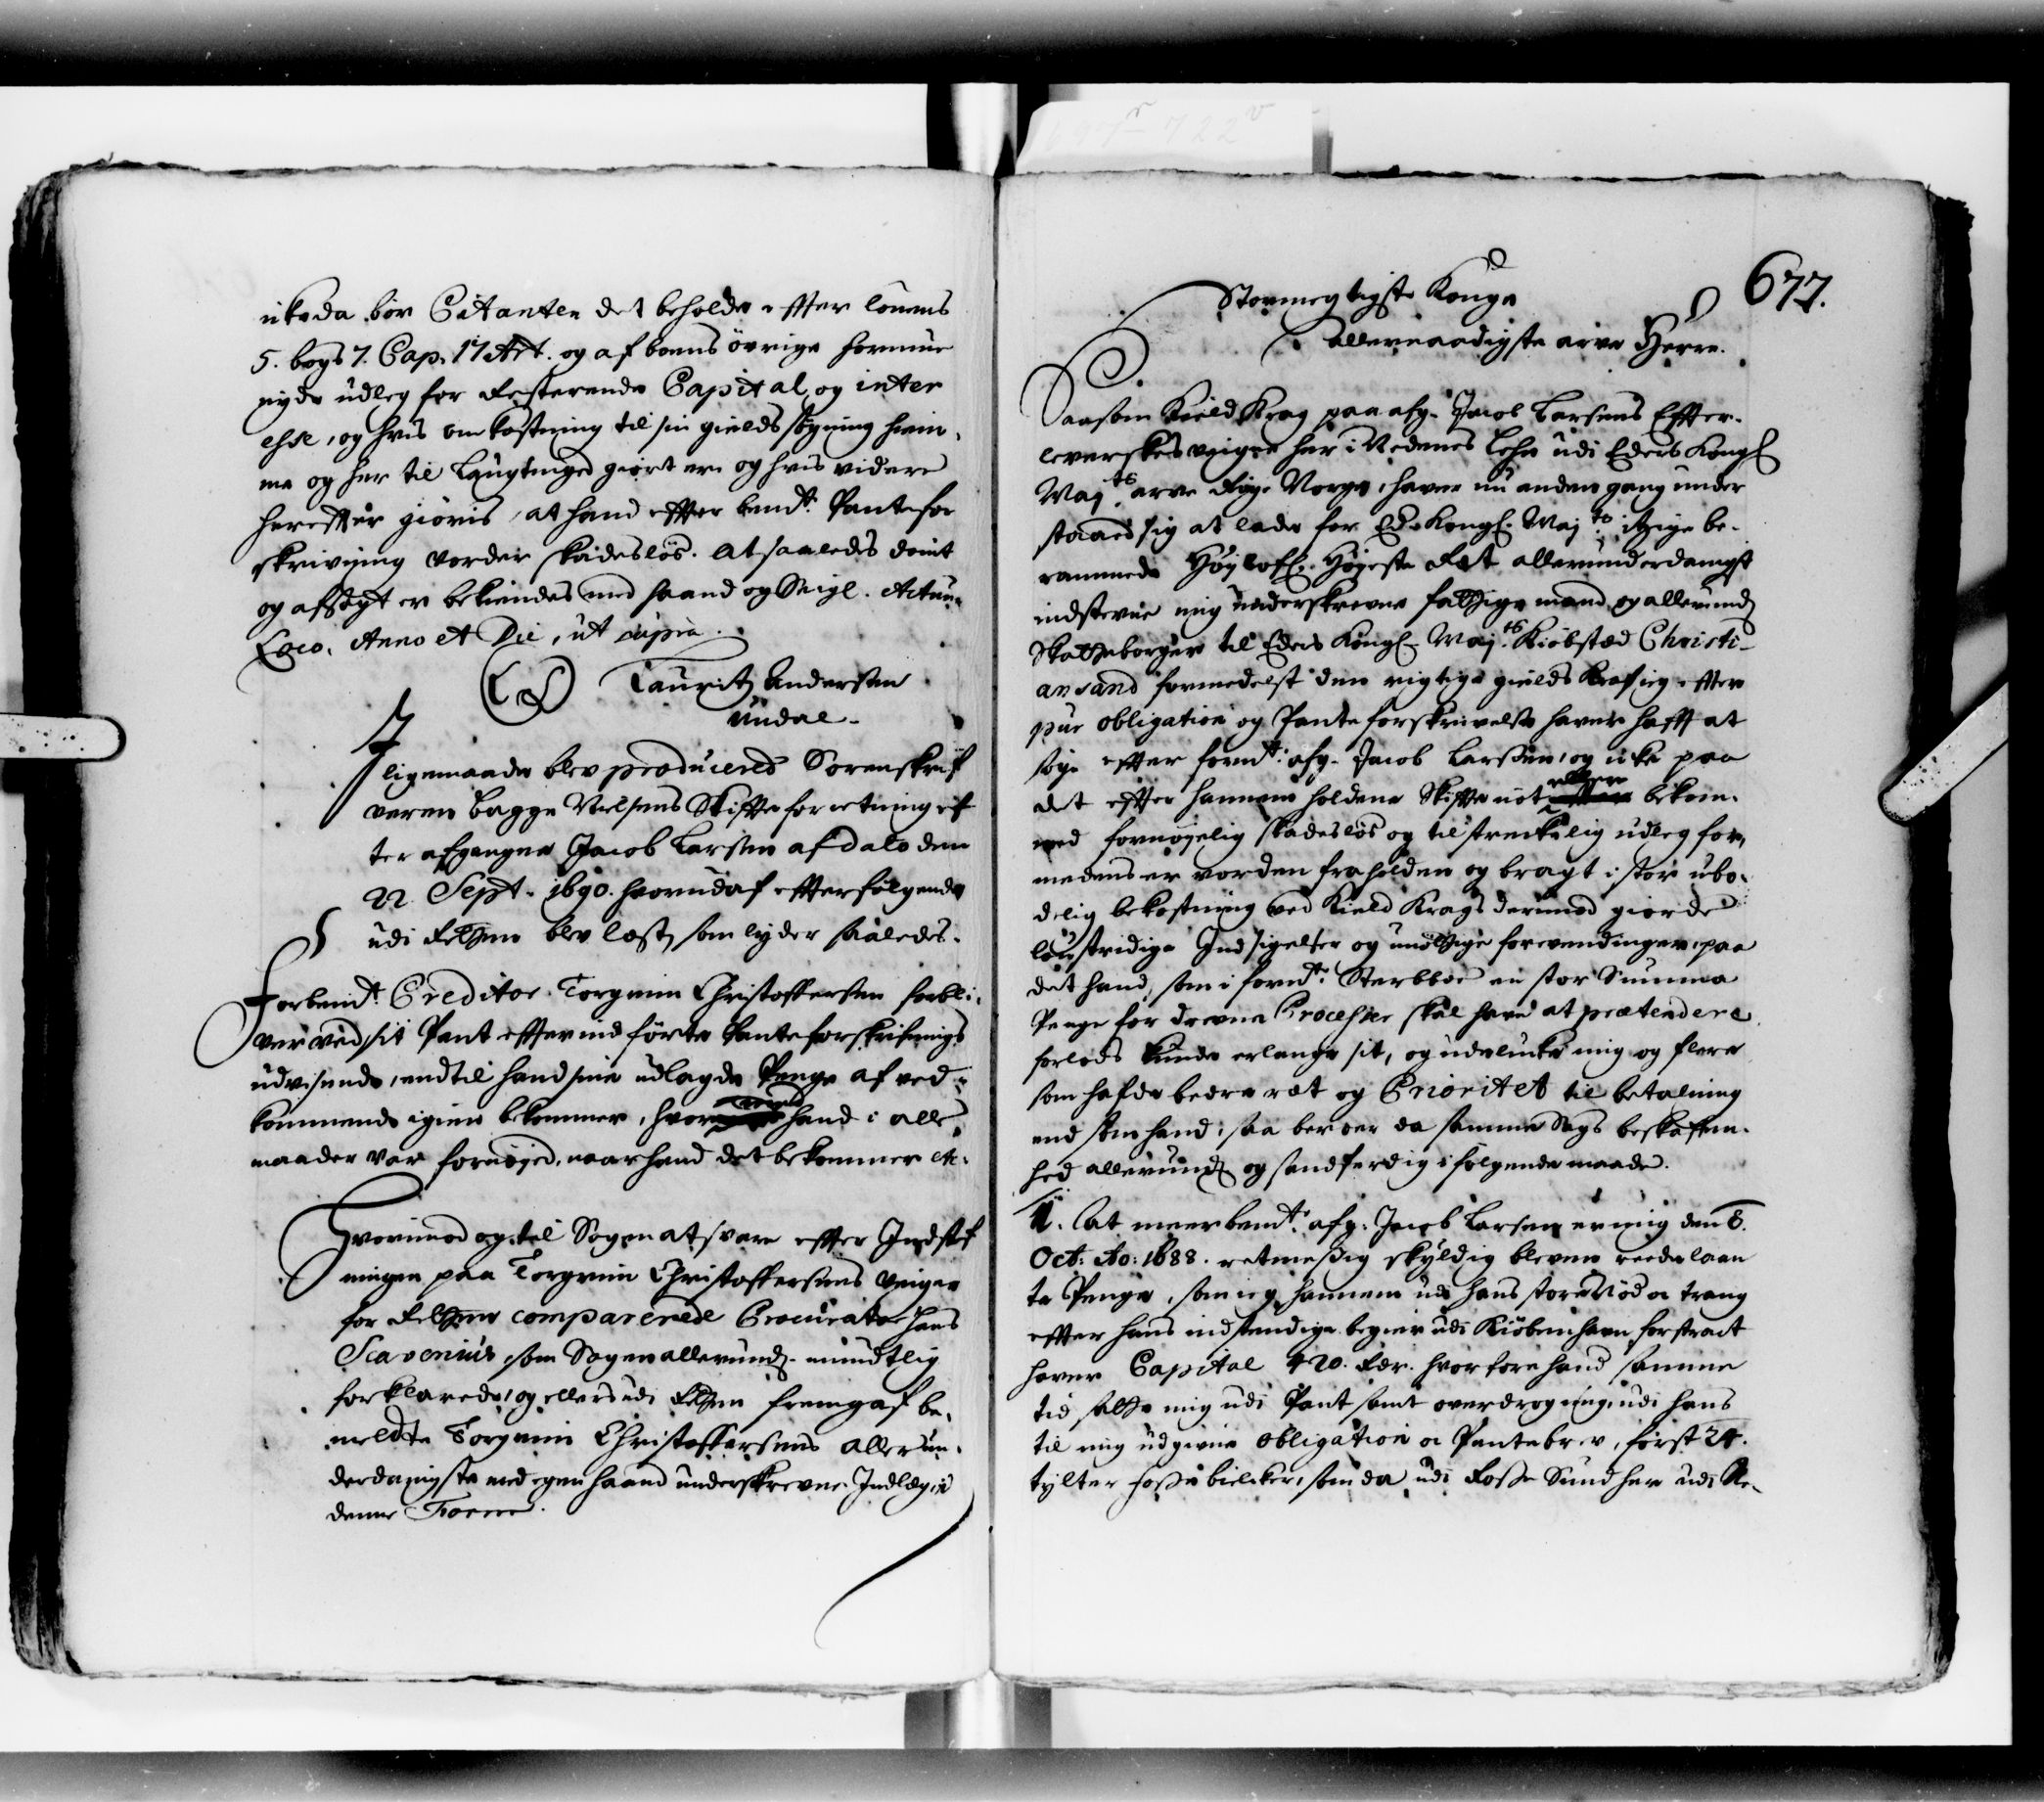 icke da bør Citanten det beholde effter lowens
5. bogs 7. Cap. 17 Art. og af boens øvrige formue
nyde udleg for Resterende Capital og inter
esse, og hvis omkostning til sin gields søgning hiem,
me og her til Laugtinged giort er og hvis videre
hereffter giøris, at hand effter bemt. Pantefor
skrivning vorder skadesløs. At saaledes dømt
og afsagt er bekiendes med haand og Seigl. Actum
Loco, Anno et Die, ut supra.
(LS) Lauritz Andersen
Undal.
I
ligemaade blev producered Sorenskrif
veren Bagge Nielsens Skifte forretning ef
ter afgangne Jacob Larsen af dato den
22 Sept. 1690. hvorudaf effterfølgende
udi Retten blev læst, som lyder saaledes.
Forbemt. Creditor Torgrim Christoffersen forbli,
ver ved sit Pant effter indførte Panteforskrifnings
udvisende, indtil hand sine udlagde Penge af ved,,
kommende igien bekommer, hvor med hand i alle
maader var fornøyed, naar hand det bekommer etc.
Hvorimod og til Sagen at svare effter Indstef
ningen paa Torgrim Christoffersens Veigne
for Retten comparerede Procurator Hans
Scavenius, som Sagen allerund. mundtlig
forklarede, og ellers udi Retten fremgaf be,
meldte Torgrim Christoffersens Allerun,
derdanigste med egen haand underskrevne Indleg, i
denne Form.
677.
Stormegtigste Konge
Allernaadigste arve Herre.
Saasom Kield Krag paa afg. Jacob Larsens Effter-
leverskes veigne her i Nedenes Lehn udi Eders Kongl
Maj.ts arve Rige Norge, haver nu anden gang under
staaed sig at lade for Ed. Kongl. Maj.ts itzige be-
rammede Høylofl. Høyeste Ret allerunderdanigst
indstevne mig underskrevne fattige mand og allerund.
Skatteborger til Eders Kongl. Maj.ts Kiøbsted Christi-
ansand formedelst den rigtige gields Kraf ieg effter
pur obligation og Panteforskrivelse haver hafft at
søge effter formt. afg. Jacob Larsen, og icke paa
det effter hannem holdene Skifte udi retten bekom-
med fornøyelig skadesløs og tilstreckelig udleg for,
medens er vorden fraholden og bragt i stor ubo-
delig bekostning ved Kield Krags derimod giorde
lovstridige Indsigelser og unøttige forevendinger, paa
det hand, som i formt. Sterbboe en stor Summa
Penge for drevne Processer skal have at prætendere
forlods kunde erlange sit, og udelucke mig og flere
som hafde bedre ret og Prioritet til betalning
end som hand; saa beroer da samme Sags beskafen-
hed allerund. og sandferdig i følgende maade.
1. At meerbemt. afg. Jacob Larsen er mig den 8.
Oct: Ao: 1688. retmeßig skyldig bleven reede laan
te Penge, som ieg hannem udi hans store Nød oc trang
effter hans indstendige begier udi Kiøbenhavn forstract
haver Capital 420. Rdr. hvorfore hand samme
tid satte mig udi Pant samt overdrog mig, udi hans
til mig udgivne obligation oc Pantebrev, først 24.
tylter foße bielcker, som da udi Roße Sund her udi Ne-